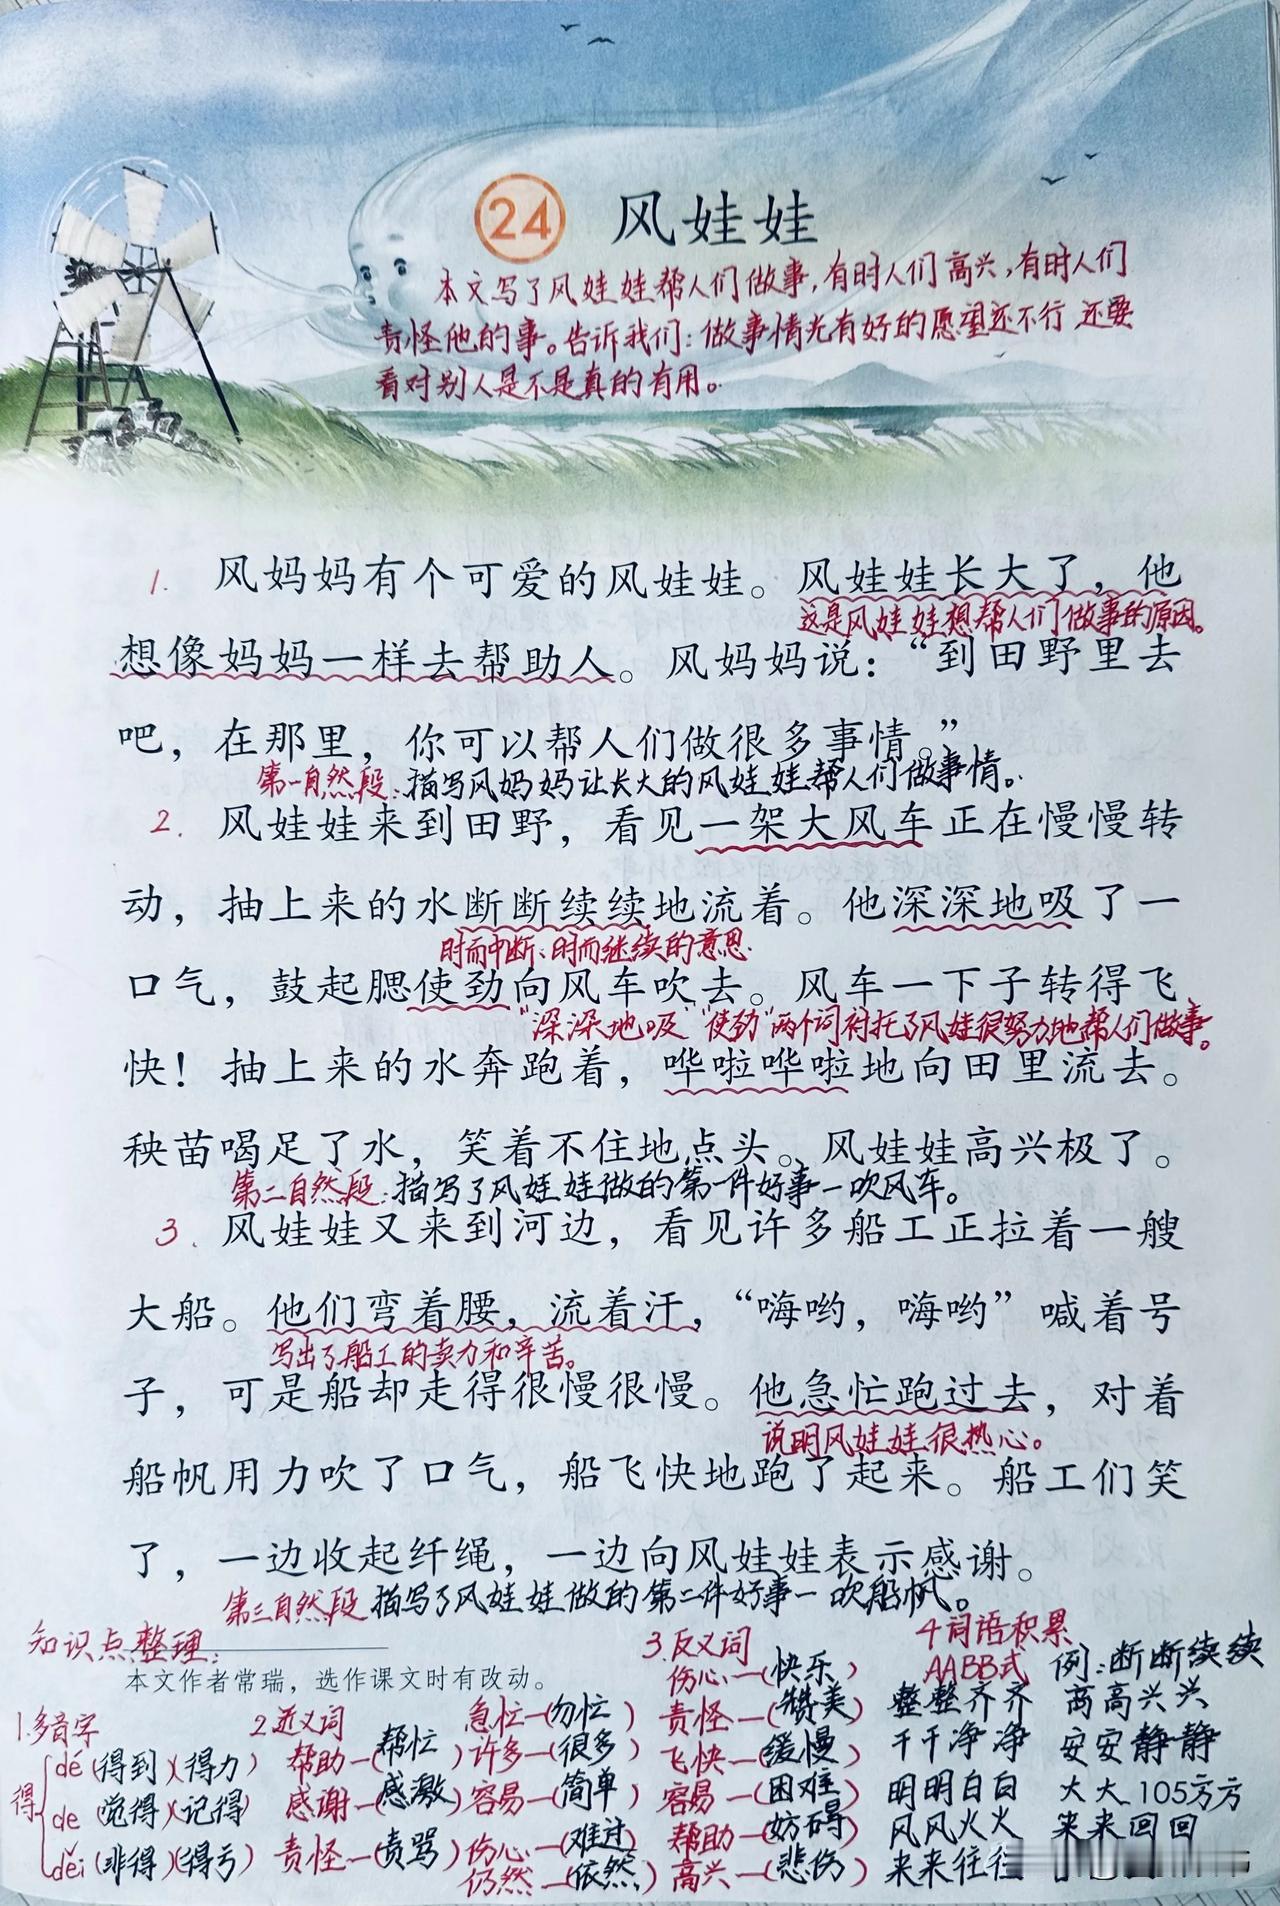 24 风娃娃
本文写了风娃娃帮人们做事,有时人们高兴,有时人们
责怪他的事。告诉我们:做事情光有好的愿望还不行 还要
看对别人是不是真的有用。
1. 风妈妈有个可爱的风娃娃。风娃娃长大了,他
这是风娃娃想帮人们做事的原因。
想像妈妈一样去帮助人。风妈妈说:“到田野里去
吧,在那里,你可以帮人们做很多事情。”
第一自然段:描写风妈妈让长大的风娃娃帮人们做事情。
2. 风娃娃来到田野,看见一架大风车正在慢慢转
动,抽上来的水断断续续地流着。他深深地吸了一
时而中断、时而继续的意思.
口气,鼓起腮使劲向风车吹去。风车一下子转得飞
“深深地吸”“使劲”两个词衬托了风娃很努力地帮人们做事。
快!抽上来的水奔跑着,哗啦哗啦地向田里流去。
秧苗喝足了水,笑着不住地点头。风娃娃高兴极了。
第二自然段:描写了风娃娃做的第一件好事一吹风车。
3. 风娃娃又来到河边,看见许多船工正拉着一艘
大船。他们弯着腰,流着汗,“嗨哟,嗨哟”喊着号
写出了船工的卖力和辛苦。
子,可是船却走得很慢很慢。他急忙跑过去,对着
说明风娃娃很热心。
船帆用力吹了口气,船飞快地跑了起来。船工们笑
了,一边收起纤绳,一边向风娃娃表示感谢。
第三自然段 描写了风娃娃做的第二件好事一吹船帆。
知识点整理:
本文作者常瑞,选作课文时有改动。
1.多音字
得
dé (得到)(得力)
de (觉得)(记得)
děi (非得)(得亏)
2.近义词
帮助—(帮忙)
感谢—(感激)
责怪—(责骂)
急忙—(匆忙)
许多—(很多)
容易—(简单)
伤心—(难过)
仍然—(依然)
3.反义词
伤心—(快乐)
责怪—(赞美)
飞快—(缓慢)
容易—(困难)
帮助—(妨碍)
高兴—(悲伤)
4词语积累
AABB式 例:断断续续
整整齐齐 高高兴兴
干干净净 安安静静
明明白白 大大方方
105
风风火火 来来回回
来来往往